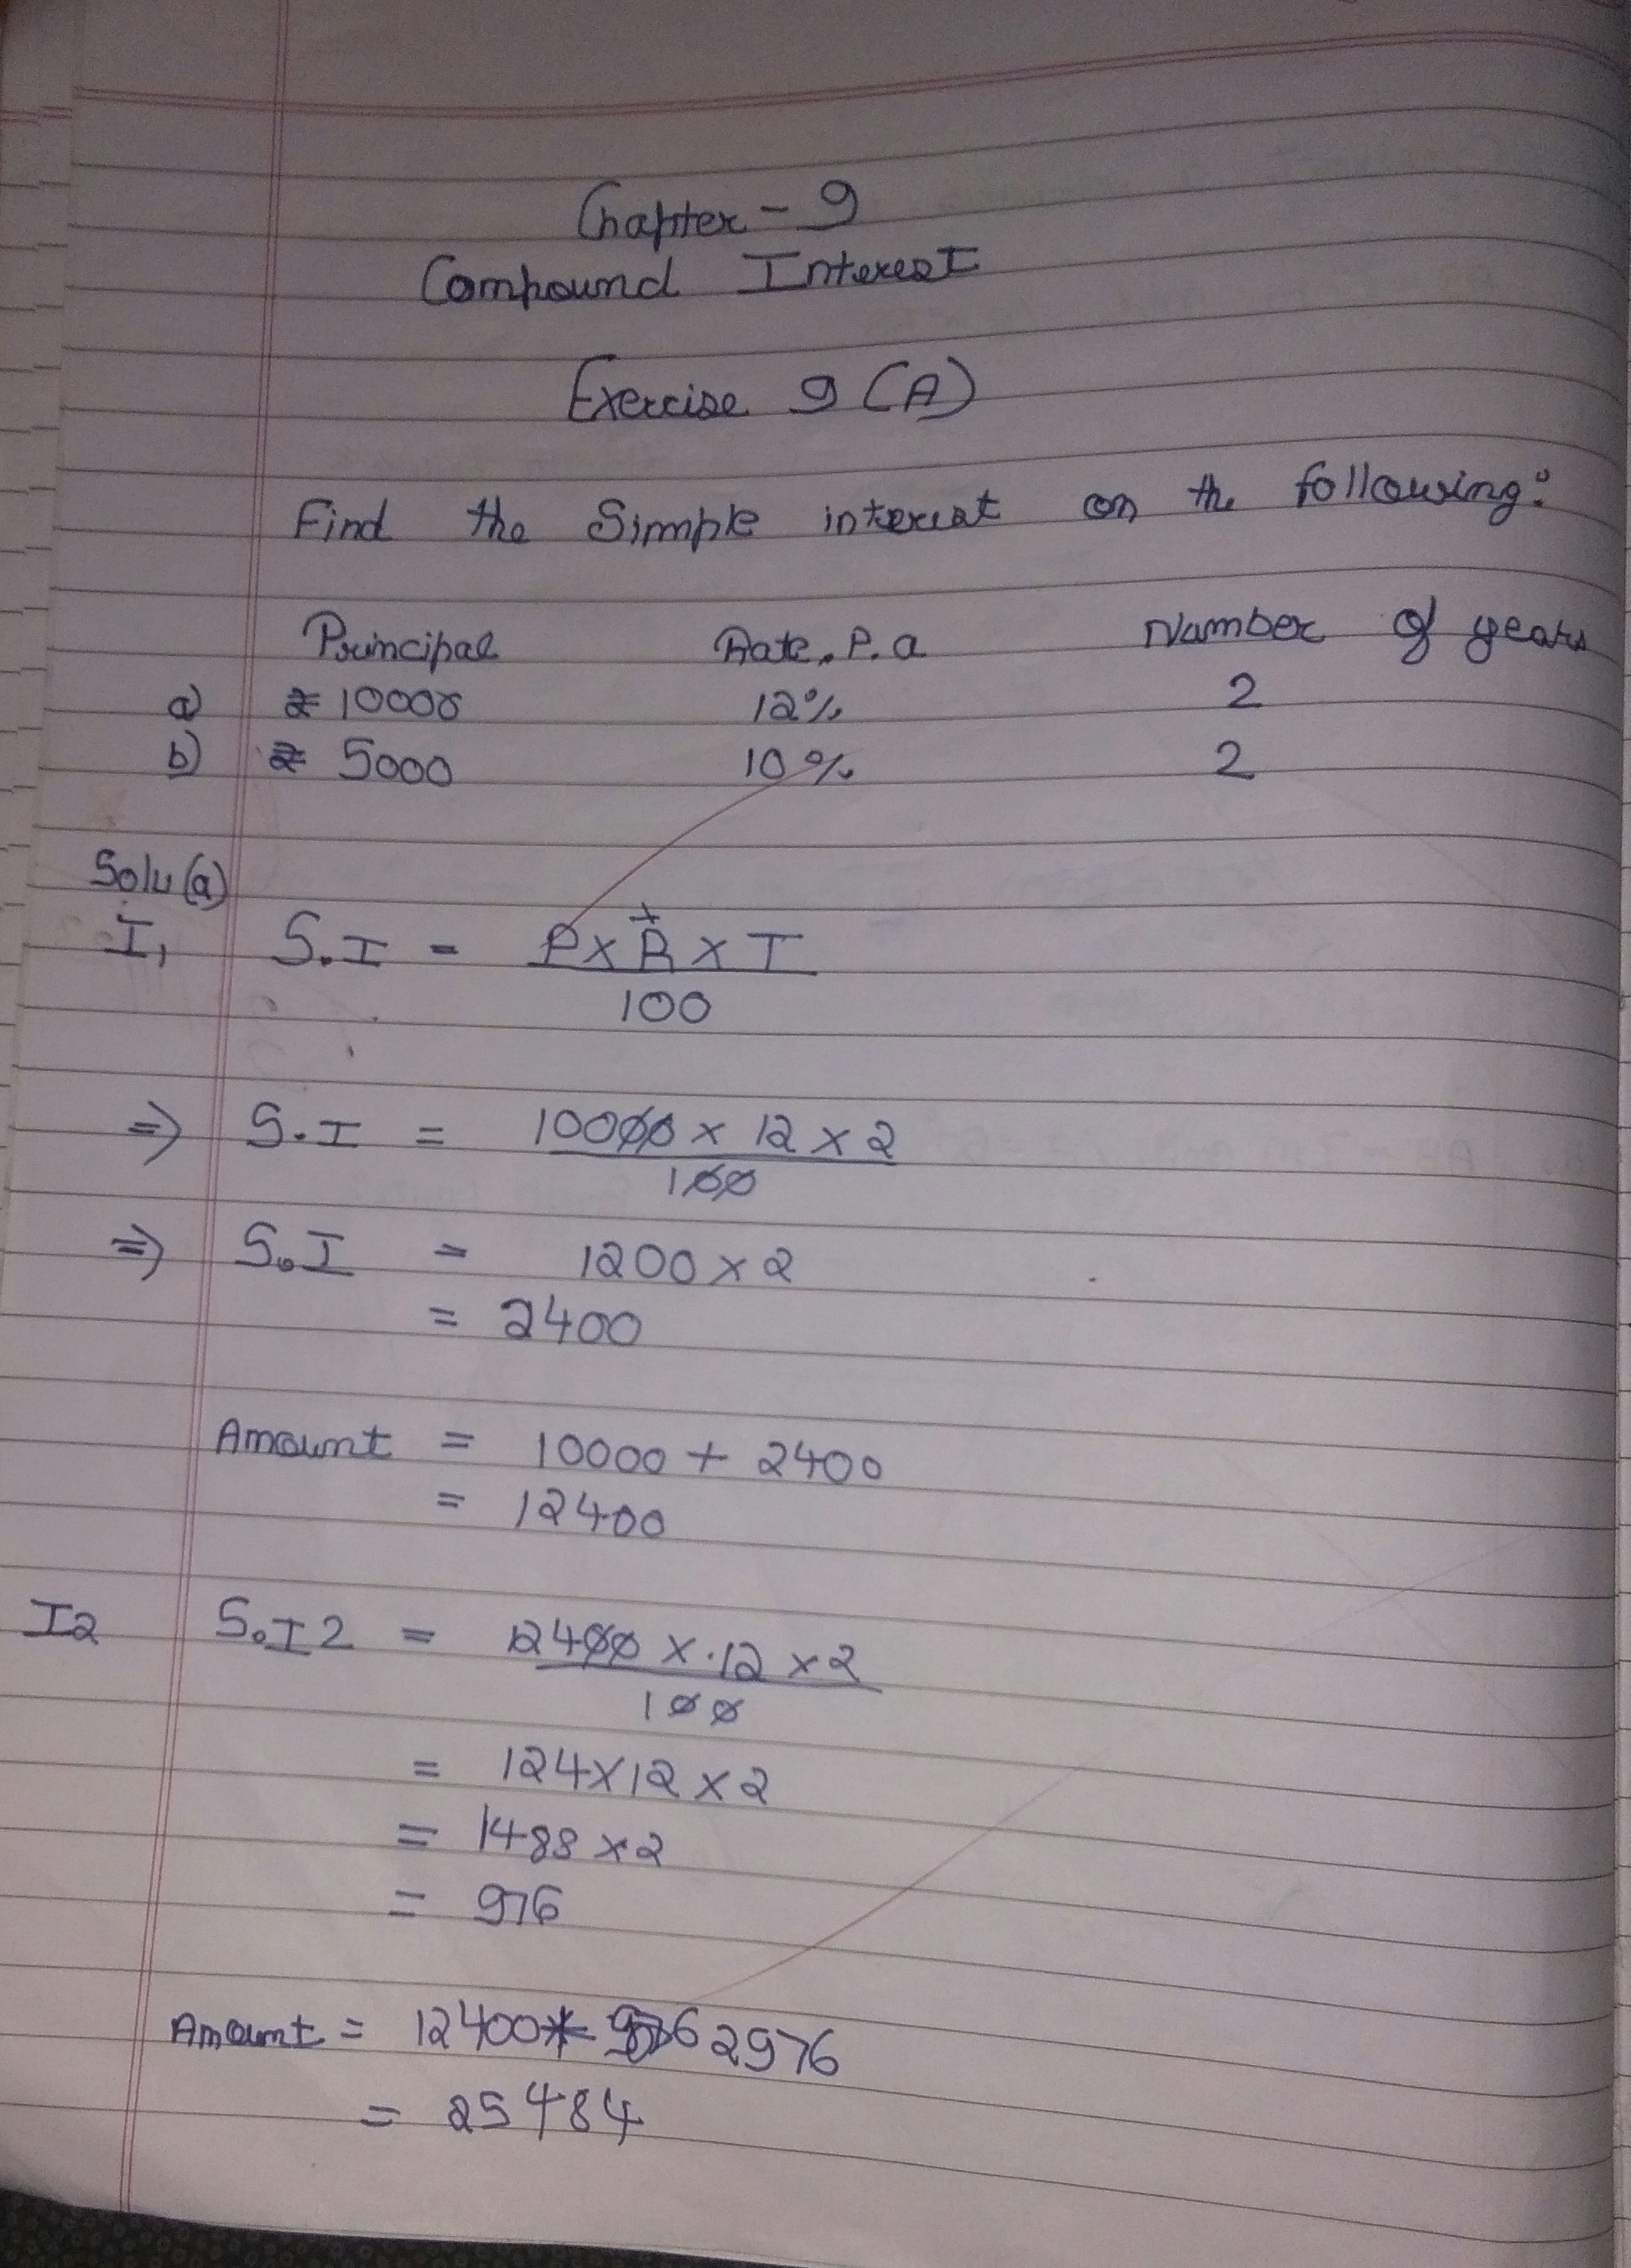 Chapter - 9
Compound Interest
Exercise 9 (A)
Find the Simple interest on the following:
Principal Rate. P.a Number of years
a) ₹ 10000 12% 2
b) ₹ 5000 10% 2
Solu (a)
I1 S.I = P x R x T
100
=> S.I = 10000 x 12 x 2
100
=> S.I = 1200 x 2
= 2400
Amount = 10000 + 2400
= 12400
I2 S.I 2 = 12400 x .12 x 2
100
= 124 x 12 x 2
= 1488 x 2
= 976
Amount = 12400 2976
= 25484